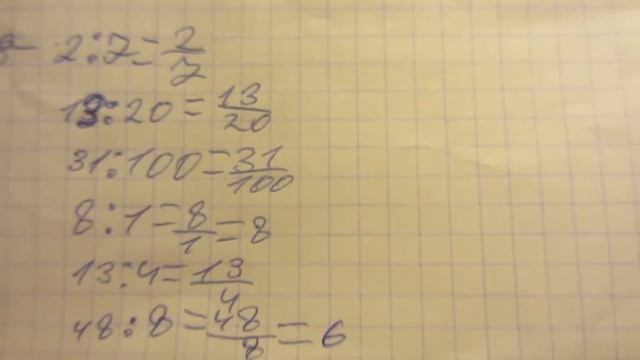 2:7=2/7
13:20=13/20
31:100=31/100
8:1=8/1=8
13:4=13/4
48:8=48/8=6